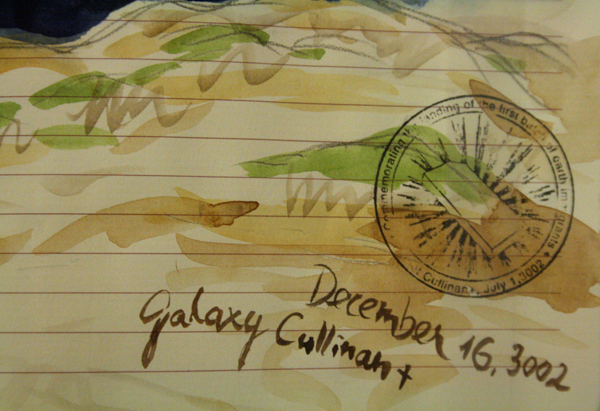 Commemorating the landing of the first batch of earth immigrants • Cullinan+, July 1, 3002 •
December 16, 3002
Galaxy Cullinan+